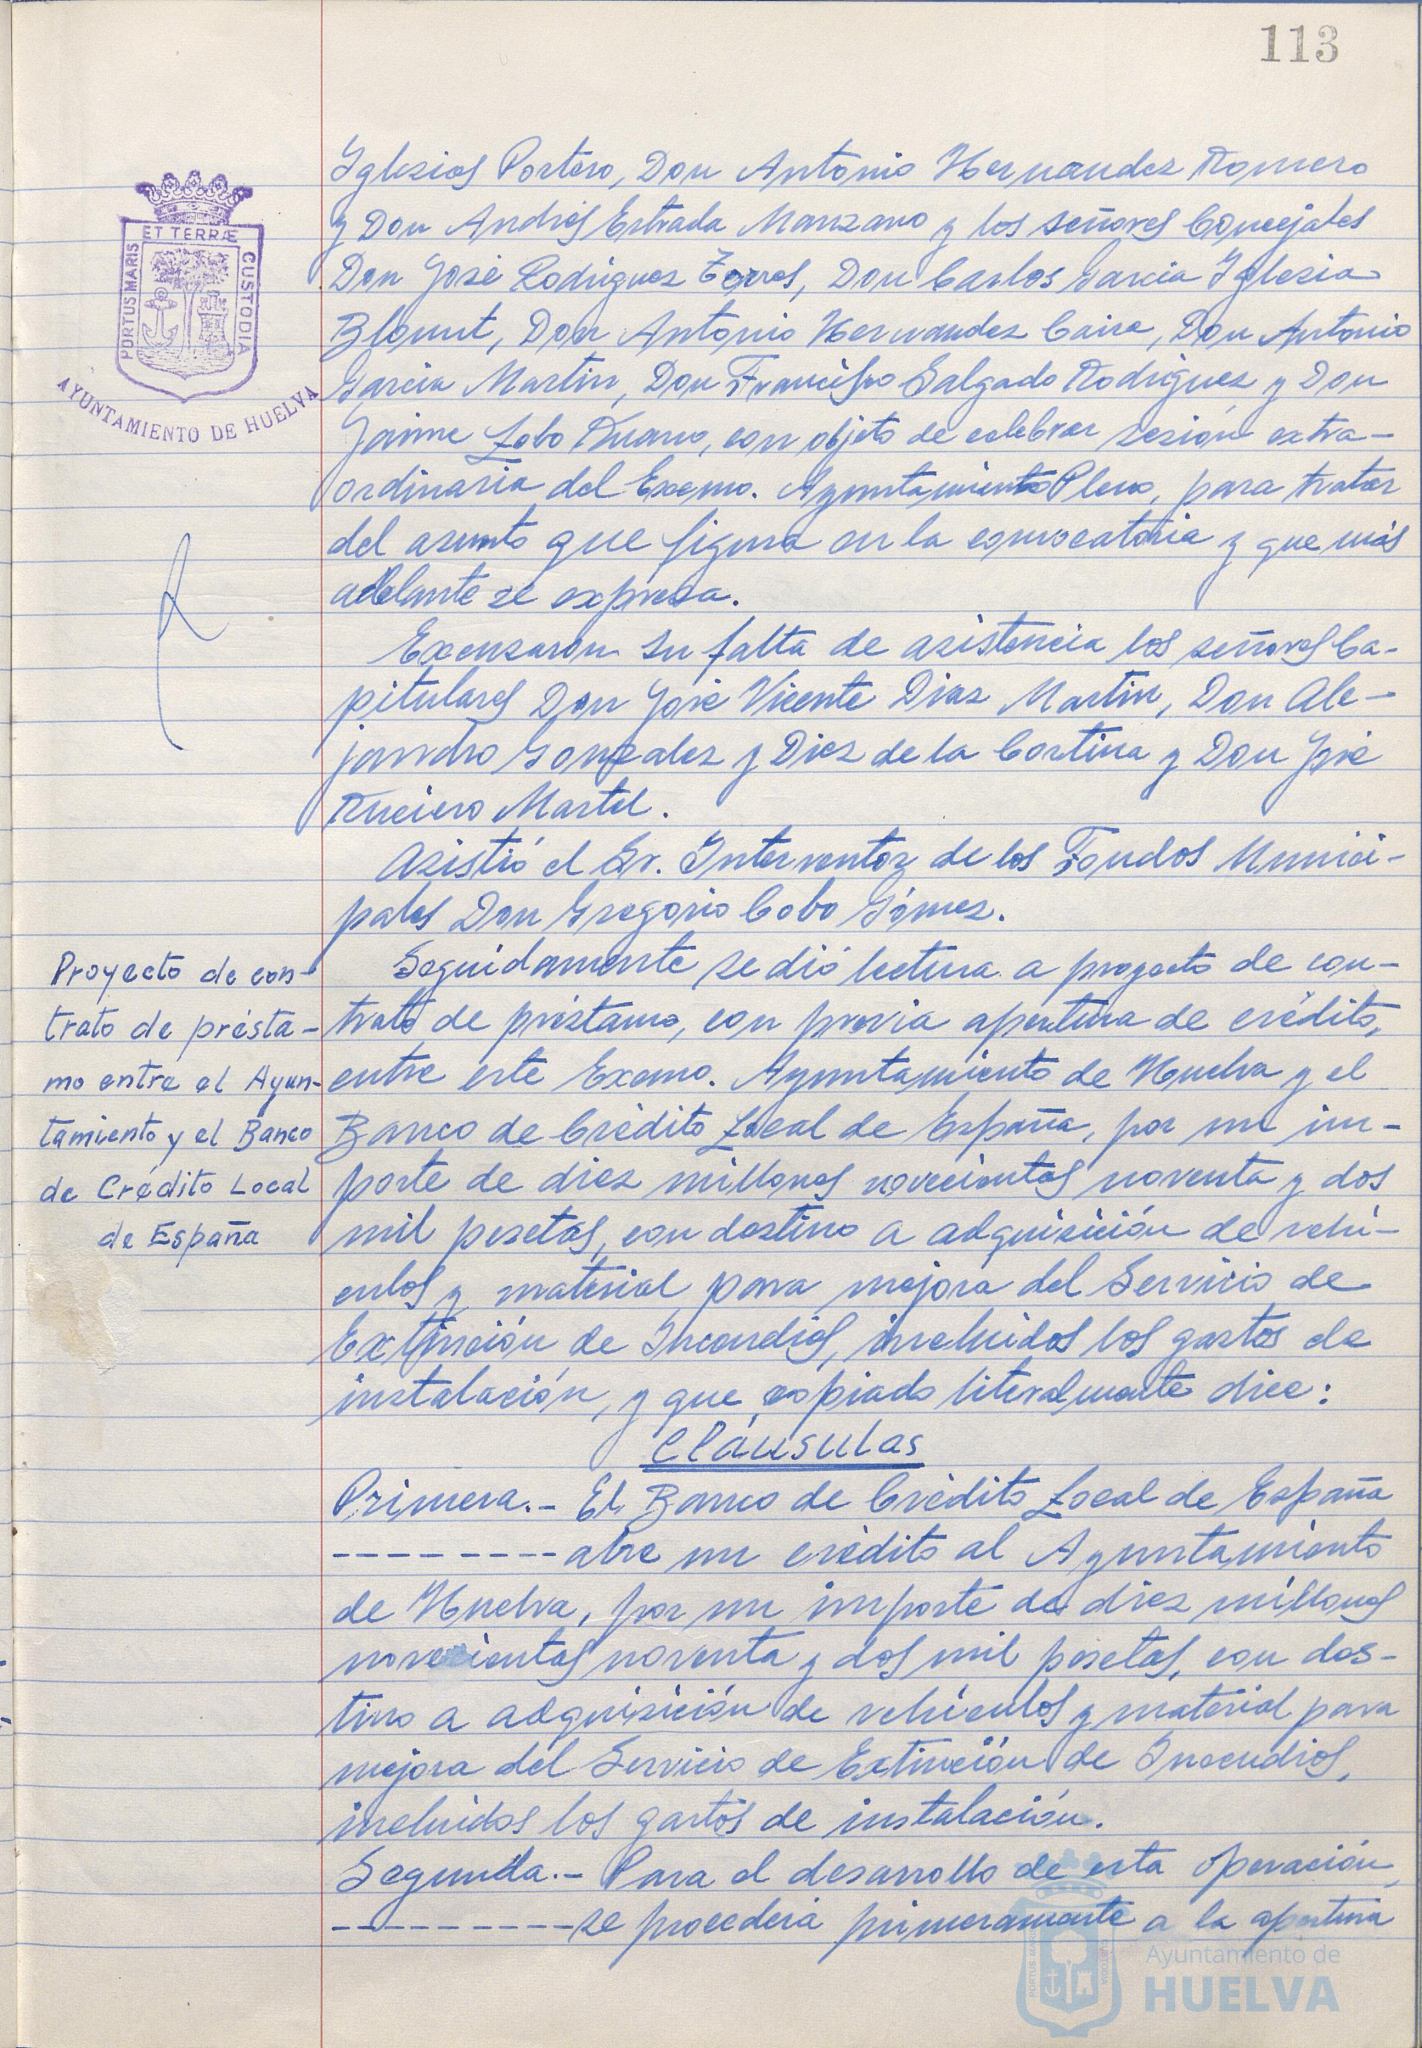 113
Iglesias Portero, Don Antonio Hernandez Romero
y Don Andrés Estrada Manzano y los señores Concejales
Don José Rodriguez Torres, Don Carlos Garcia Iglesia
Don Antonio Hernandez Don Antonio
Garcia Martin, Don Francisco Salgado Rodriguez y Don
Jaime Lobo con objeto de celebrar sesión extra-
ordinaria del Excmo. Ayuntamiento Pleno, para tratar
del asunto que figura en la convocatoria y que más
adelante se expresa.
Excusaron su falta de asistencia los señores Ca-
pitulares Don José Vicente Diaz Martin, Don Ale-
jandro Gonzalez y Diez de la Cortina y Don José
Martel.
Asistió el Sr. Interventor de los Fondos Munici-
pales Don Gregorio Cobo Gómez.
Proyecto de con-
trato de présta-
mo entre el Ayun-
tamiento y el Banco
de Crédito Local
de España
Seguidamente se dió lectura a proyecto de con-
trato de préstamo, con previa apertura de crédito,
entre este Excmo. Ayuntamiento de Huelva y el
Banco de Crédito Local de España, por un im-
porte de diez millones novecientas noventa y dos
mil pesetas, con destino a adquisición de vehí-
culos y material para mejora del Servicio de
Extinción de Incendios, incluidos los gastos de
instalación, y que copiado literalmente dice:
Cláusulas
Primera.- El Banco de Crédito Local de España
--------- abre un crédito al Ayuntamiento
de Huelva, por un importe de diez millones
novecientas noventa y dos mil pesetas, con des-
tino a adquisición de vehículos y material para
mejora del Servicio de Extinción de Incendios,
incluidos los gastos de instalación.
Segunda.- Para el desarrollo de esta operación,
--------- se procederá primeramente a la apertura
PORTUS MARIS
ET TERRÆ
CUSTODIA
AYUNTAMIENTO DE HUELVA
Ayuntamiento de
HUELVA